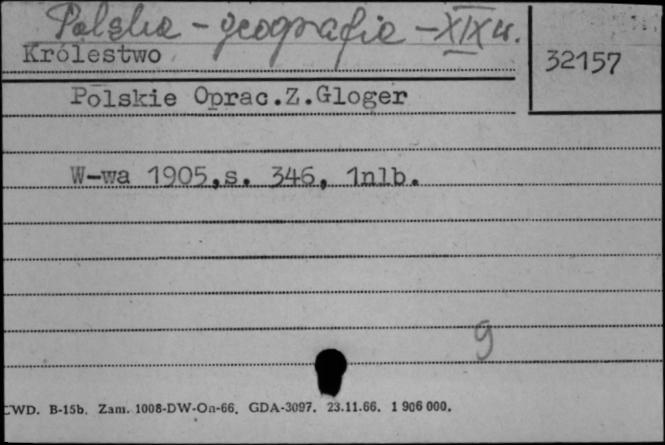 Polska - geografia - XIX w.
Królestwo
32157
Polskie Oprac.Z.Gloger
W-wa 1905,s. 346, 1nlb.
9
CWD. B-15b. Zam. 1008-DW-On-66. GDA-3097. 23.11.66. 1 906 000.